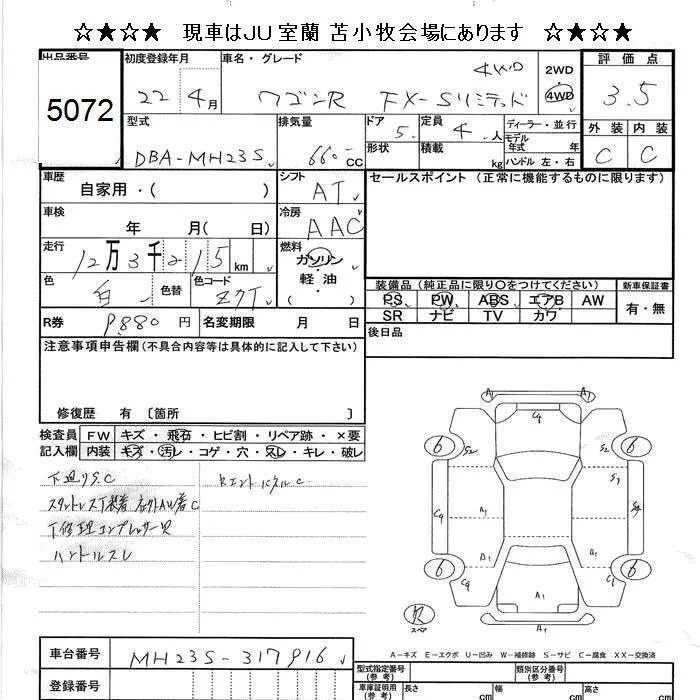 ☆★☆★ 現車はJU室蘭 苫小牧会場にあります ☆★☆★
出品番号 初度登録年月 車名・グレード 評価点
5072 22年4月 ワゴンR FX-Sリミテッド 4WD 2WD 4WD 3.5
型式 排気量 ドア 定員 ディーラー・並行 外装 内装
DBA-MH23S 660 CC 5 4人 モデル年式 年 C C
形状 積載 kg ハンドル 左・右
車歴 自家用・( ) シフト AT セールスポイント (正常に機能するものに限ります)
車検 年 月( 日) 冷房 AAC
走行 12万3千215 km 燃料 ガソリン・軽油
色 白 色替 色コード Z7T
装備品 (純正品に限り○をつけてください) 新車保証書
PS PW ABS エアB AW 有・無
SR ナビ TV カワ
R券 9880円 名変期限 月 日 後日品
注意事項申告欄(不具合内容等は具体的に記入して下さい)
修復歴 有 [箇所 ]
検査員記入欄 FW キズ・飛石・ヒビ割・リペア跡・×要
内装 キズ・汚レ・コゲ・穴・スレ・キレ・破レ
下廻りS.C
ハンドルスレ
A1 A1
C9
6 S2 S2 6
C9 A1 S7 S4
6 C9 A1 A1 C1 6
A1
A1
スペア
A-キズ E-エクボ U-凹み W-補修跡 S-サビ C-腐食 XX-交換済
車台番号 MH23S-317916
登録番号
型式指定番号(参考) 類別区分番号(参考)
車庫証明用(参考) 長さ cm 幅 cm 高さ cm